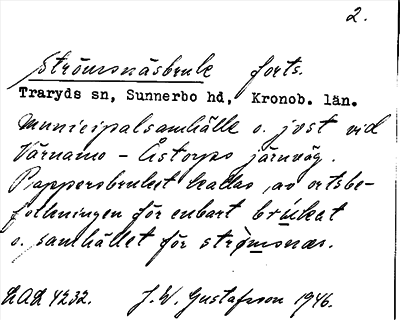 2.
Strömsnäsbruk forts.
Traryds sn, Sunnerbo hd, Kronob. län.
Municipalsamhälle o. jvst vid
Värnamo – Åstorps järnväg.
Pappersbruket kallas av ortsbe-
folkningen för enbart brúket
o. samhället för strömsnäs.
D.A.L. 4232. J. W. Gustafsson 1946.